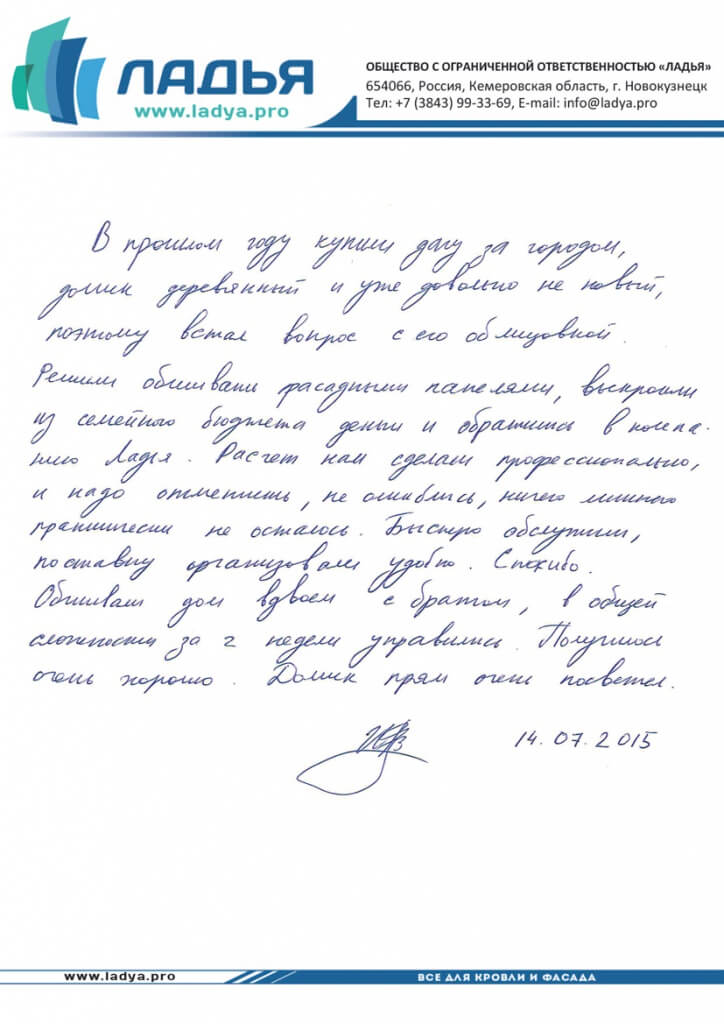 ЛАДЬЯ
www.ladya.pro
ОБЩЕСТВО С ОГРАНИЧЕННОЙ ОТВЕТСТВЕННОСТЬЮ «ЛАДЬЯ»
654066, Россия, Кемеровская область, г. Новокузнецк
Тел: +7 (3843) 99-33-69, E-mail: info@ladya.pro
В прошлом году купили дачу за городом,
домик деревянный и уже довольно не новый,
поэтому встал вопрос с его облицовкой.
Решили обшивать фасадными панелями, выкроили
из семейного бюджета деньги и обратились в компа-
нию Ладья. Расчет нам сделали профессионально,
и надо отметить, не ошиблись, ничего лишнего
практически не осталось. Быстро обслужили,
поставку организовали удобно. Спасибо.
Обшивали дом вдвоем с братом, в общей
сложности за 2 недели управились. Получилось
очень хорошо. Домик прям очень посветлел.
14.07.2015
www.ladya.pro
ВСЕ ДЛЯ КРОВЛИ И ФАСАДА